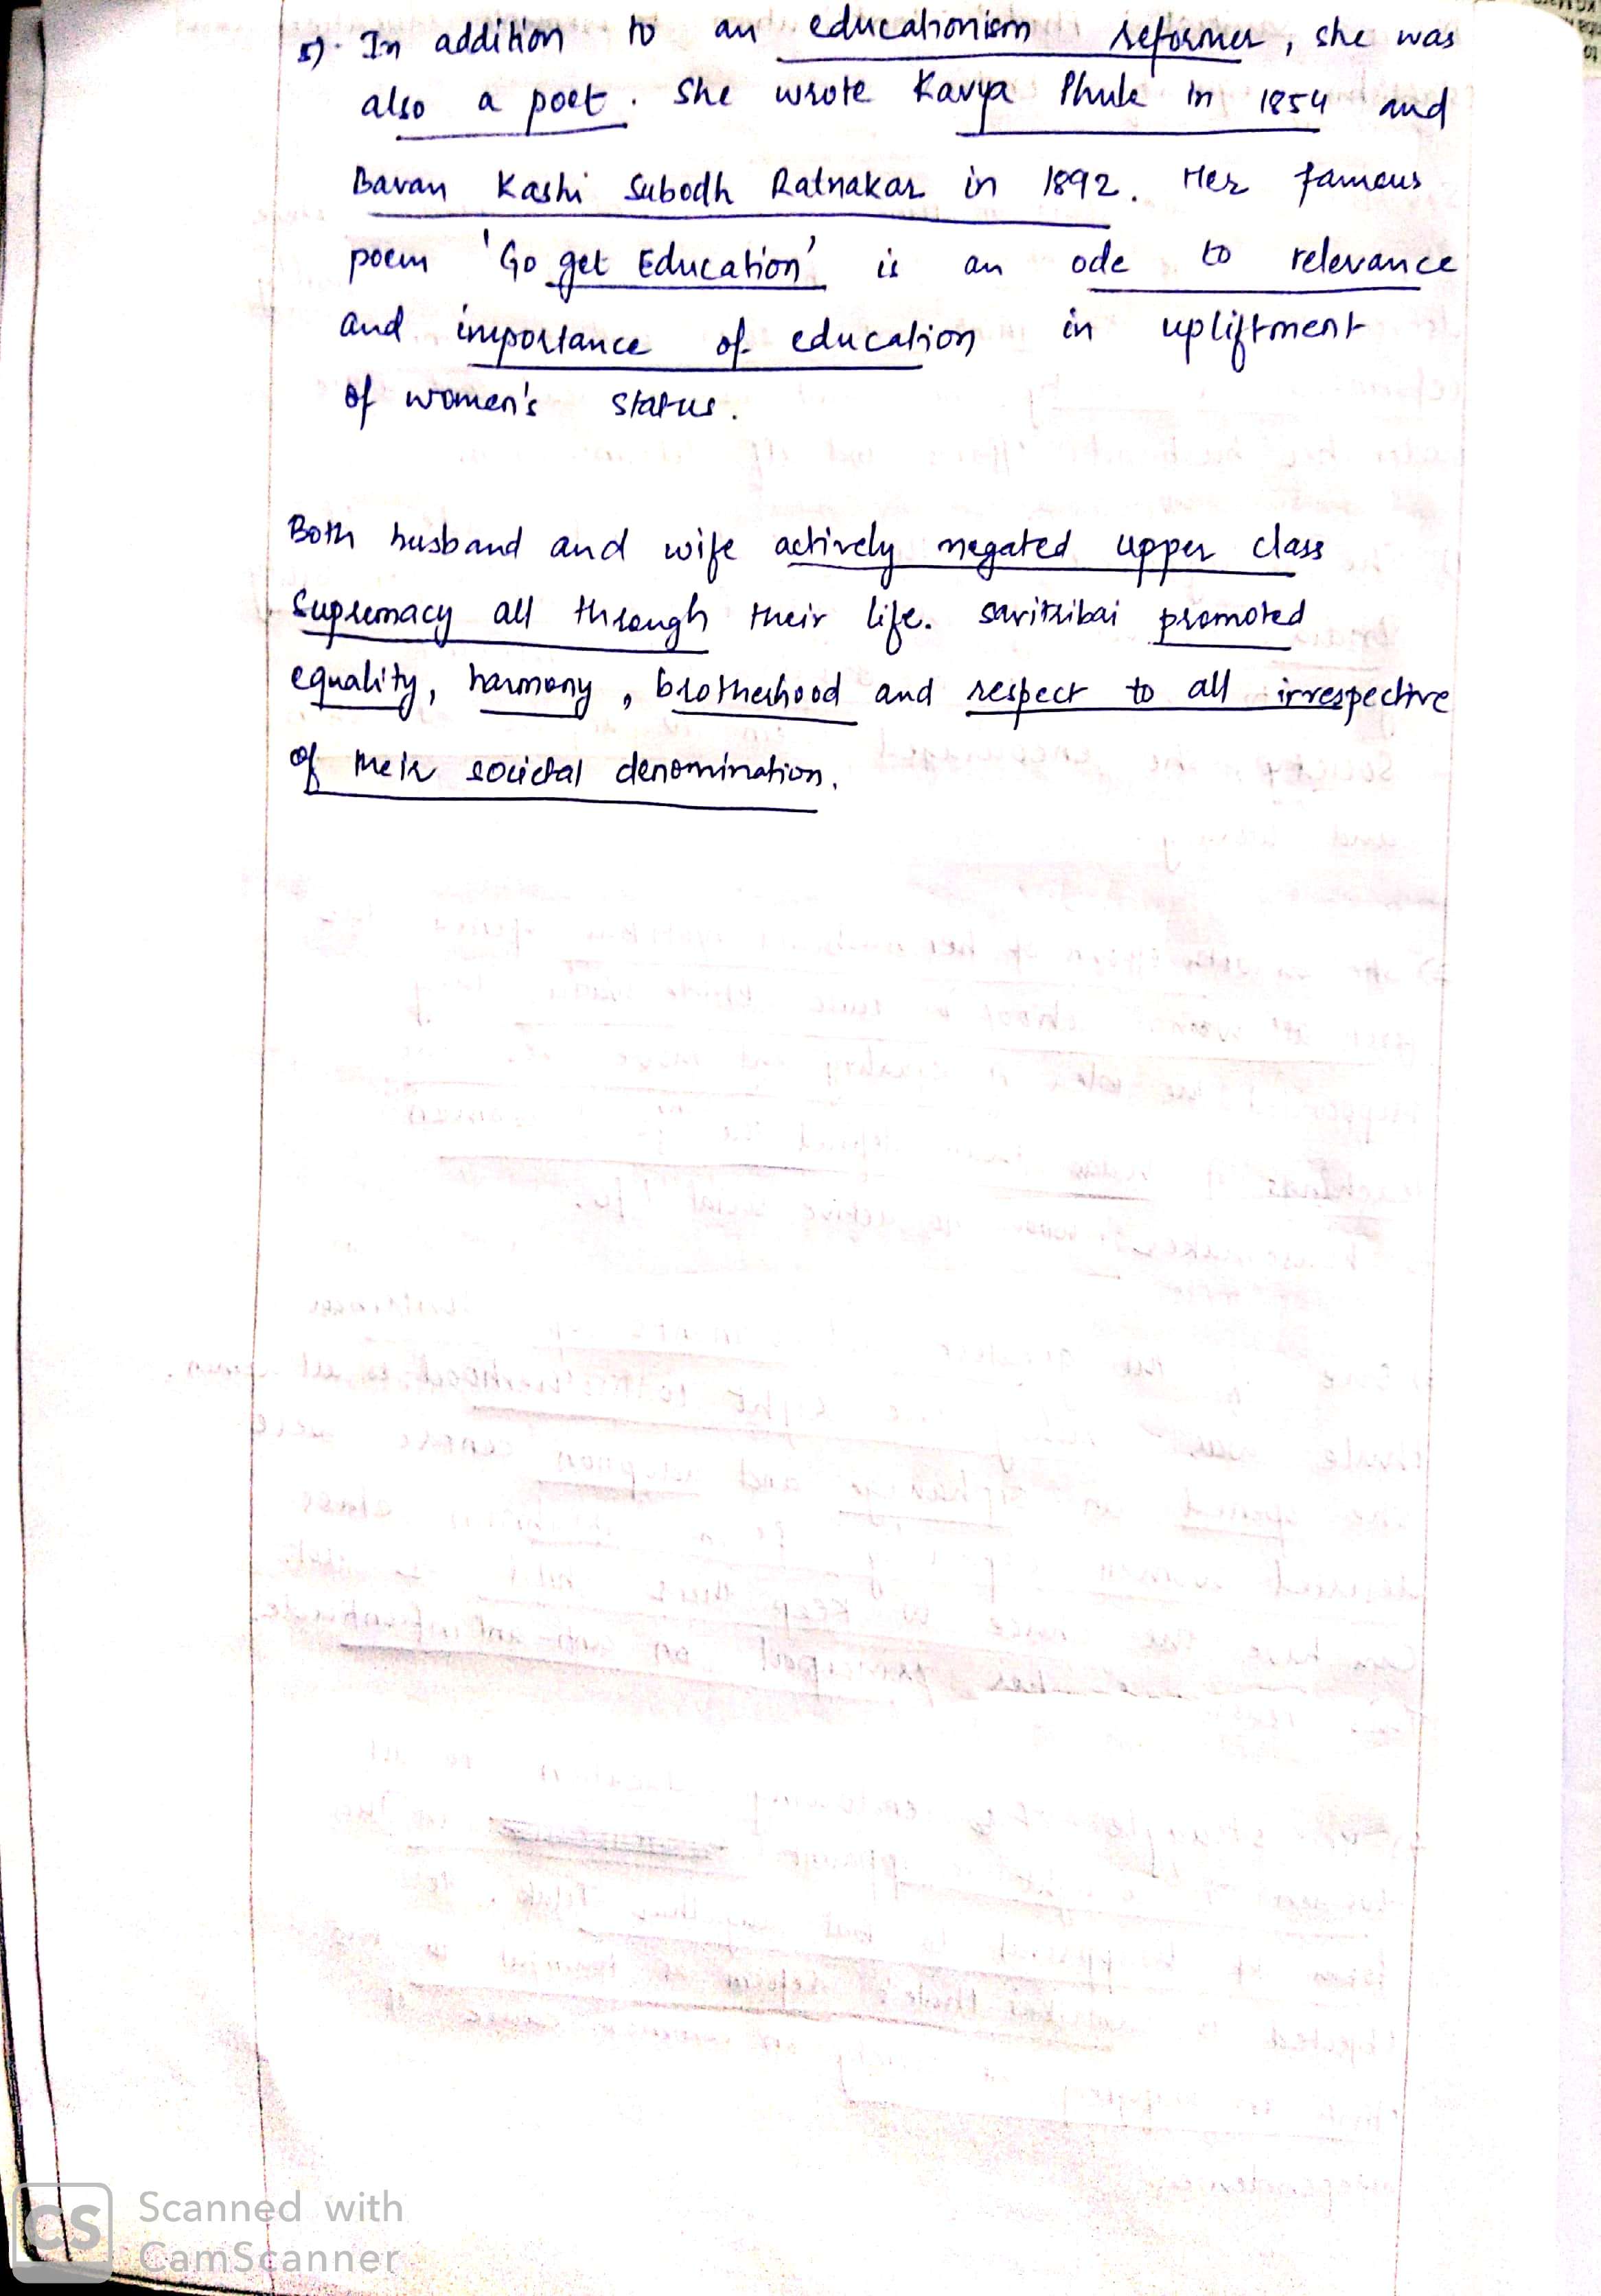 5). In addition to an educationism reformer, she was
also a poet. She wrote Kavya Phule in 1854 and
Bavan Kashi Subodh Ratnakar in 1892. Her famous
poem 'Go get Education' is an ode to relevance
and importance of education in upliftment
of women's status.
Both husband and wife actively negated upper class
supremacy all through their life. Savitribai promoted
equality, harmony, brotherhood and respect to all irrespective
of their societal denomination.
CS Scanned with
CamScanner